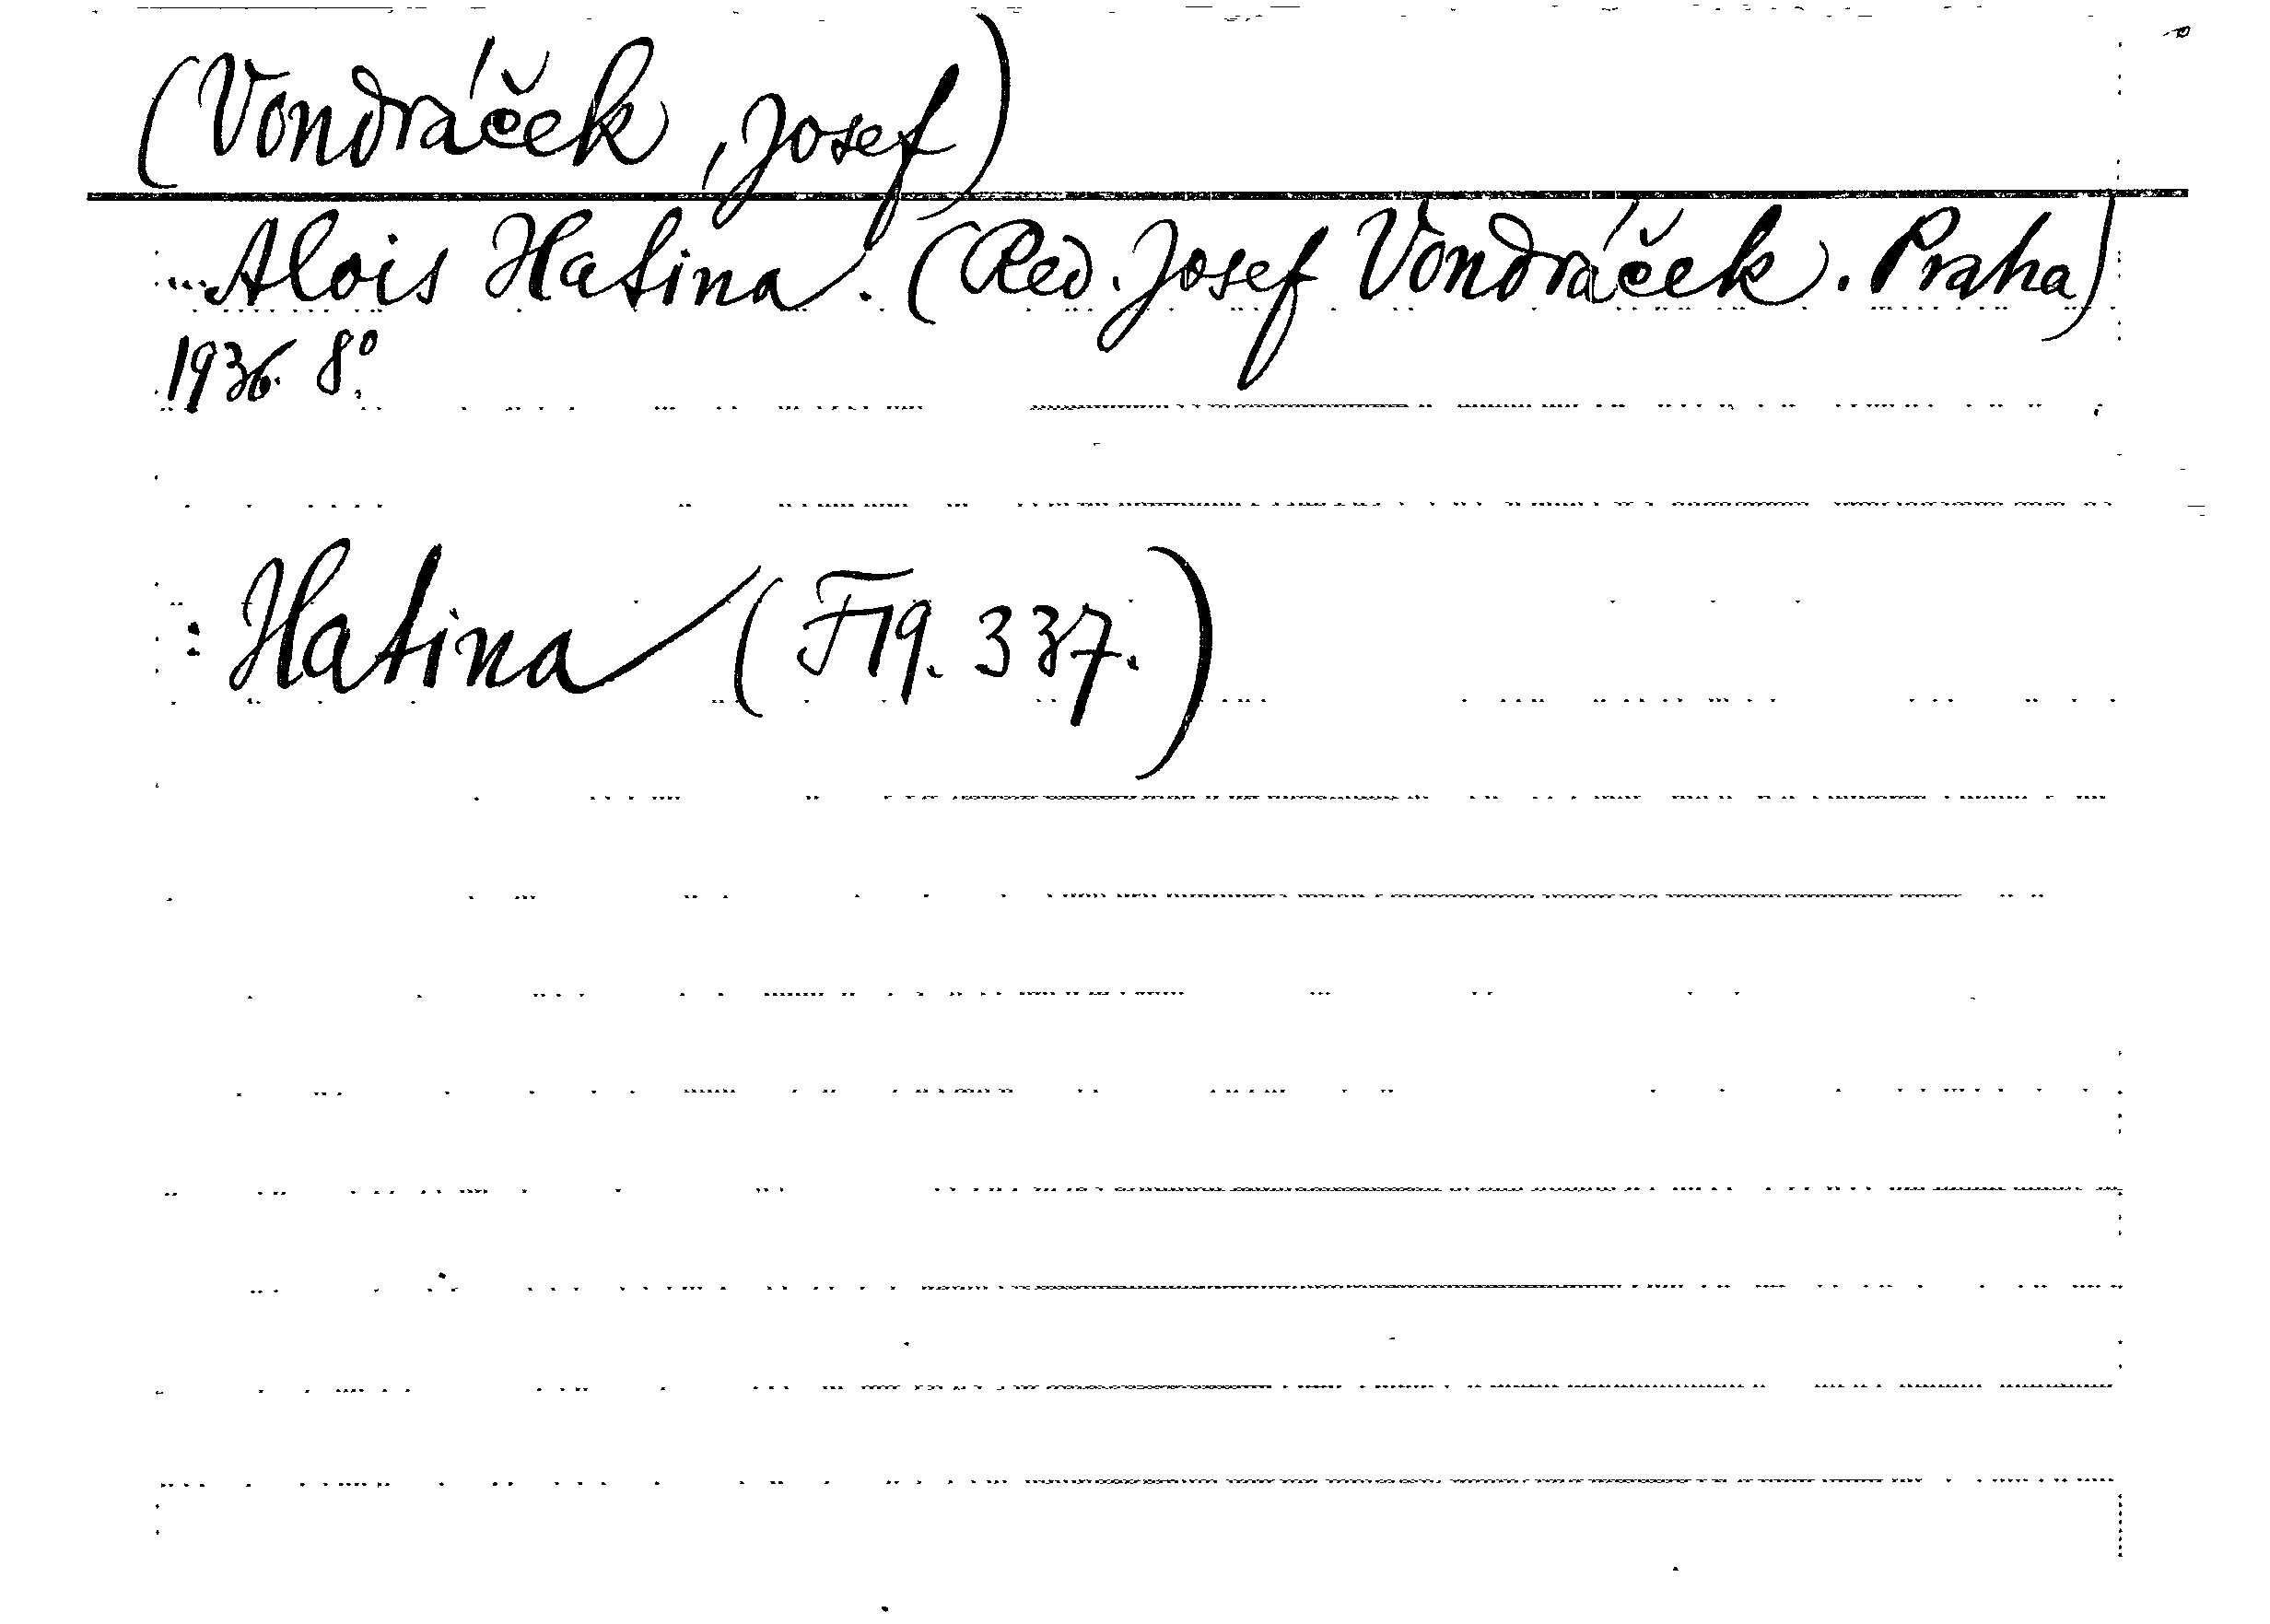 (Vondráček, Josef)
...Alois Hatina. (Red. Josef Vondráček. Praha)
1936. 8°.
: Hatina (F 19. 337.)